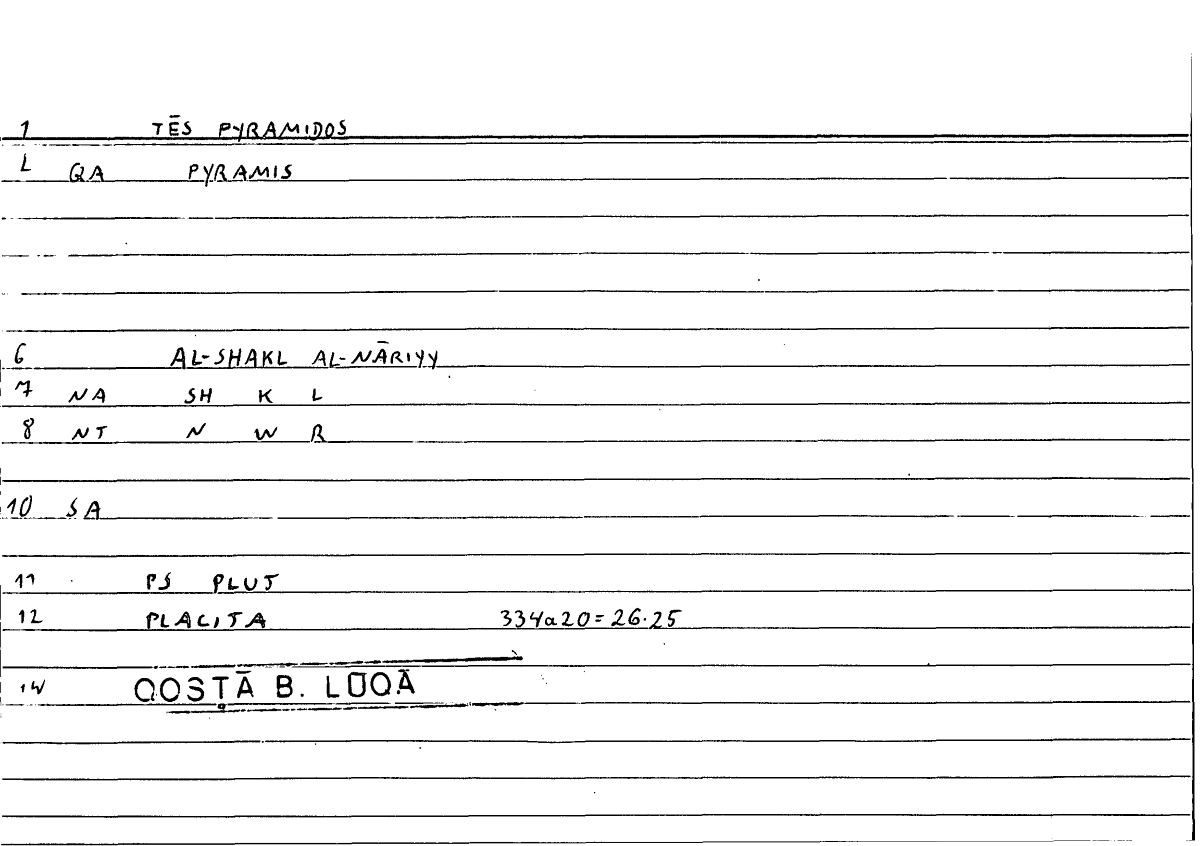 1 TĒS PYRAMIDOS
L QA PYRAMIS
6 AL-SHAKL AL-NĀRIYY
7 NA SH K L
8 NT N W R
10 SA
11 PS PLUT
12 PLACITA 334a20=26.25
14 QOSṬĀ B. LŪQĀ